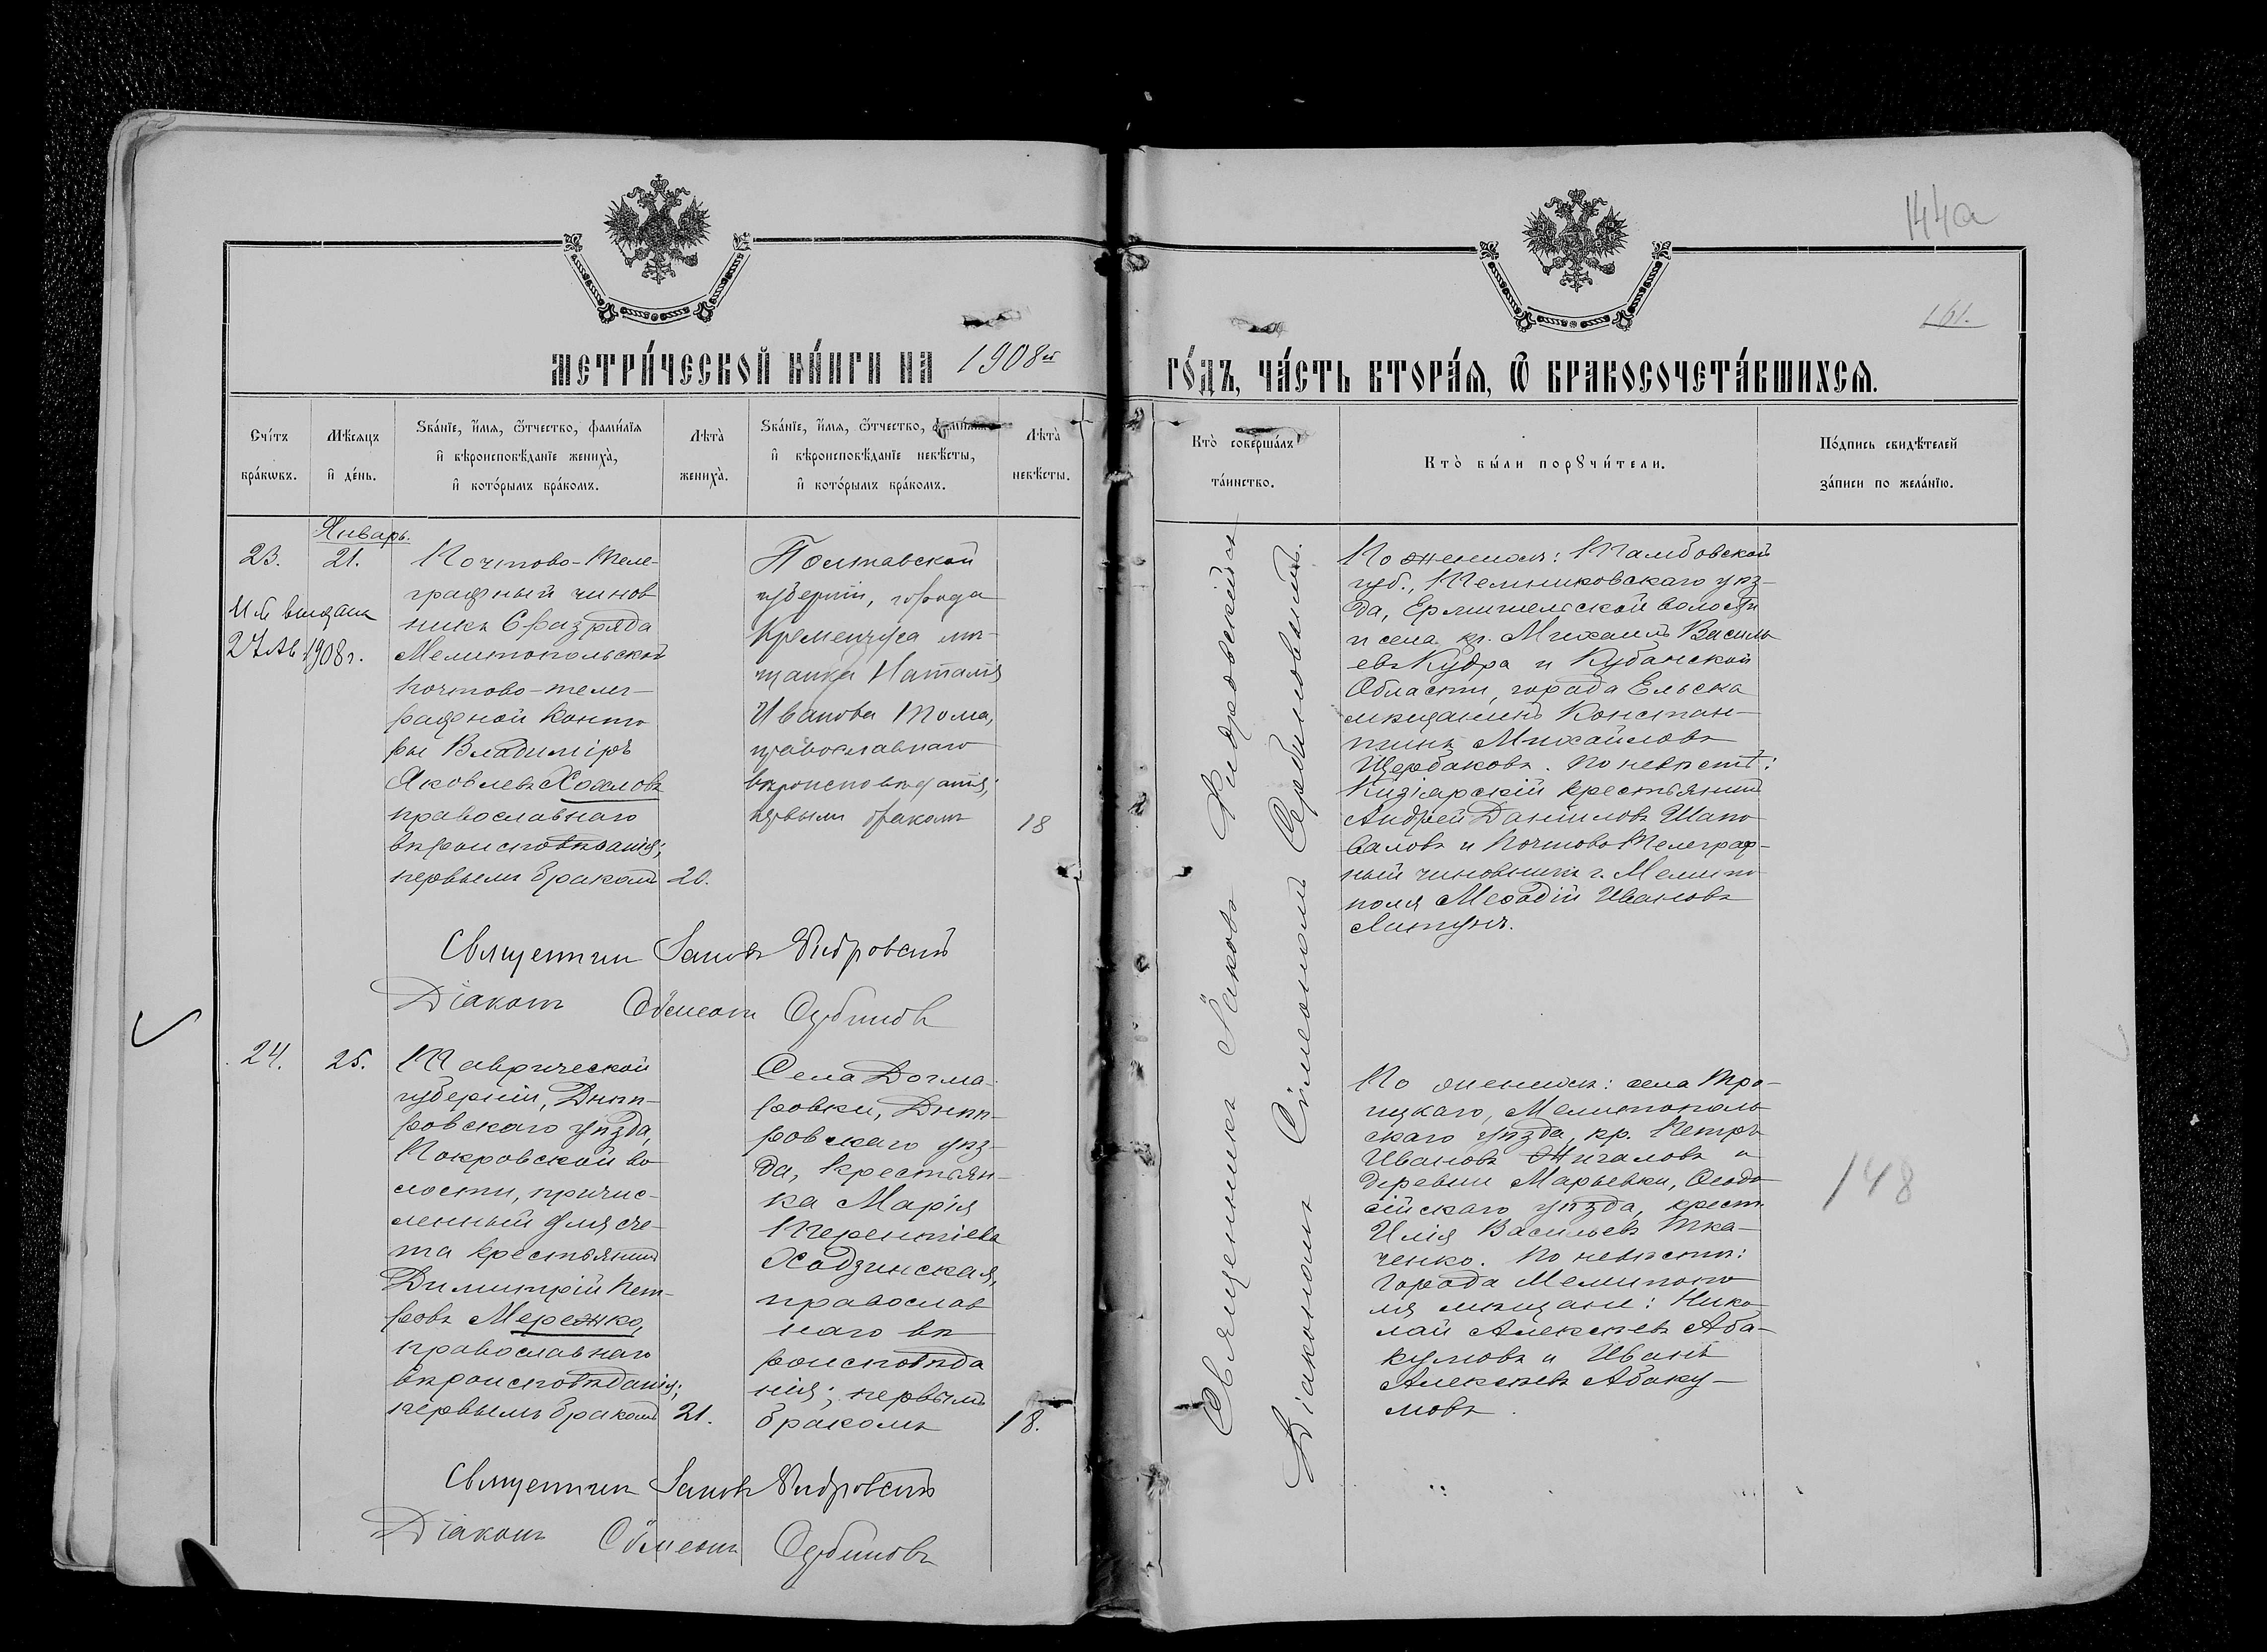 144а
161.
МЕТРИ́ЧЕСКОЙ КНИ́ГИ НА 1908й
ГО́ДЪ, ЧА́СТЬ ВТОРА́Я, Ѿ БРАКОСОЧЕТА́ВШИХСЯ.
Сче́тъ
бра́ковъ.
Мѣ́сяцъ
и҆ де́нь.
Ѕва́нїе, и҆́мя, ѻ҆́тчество, фами́лїя
и҆ вѣроисповѣ́данїе жениха̀,
и҆ кото́рымъ бра́комъ.
Лѣта̀
жениха̀.
Ѕва́нїе, и҆́мя, ѻ҆́тчество, фами́лїя
и҆ вѣроисповѣ́данїе невѣ́сты,
и҆ кото́рымъ бра́комъ.
Лѣта̀
невѣ́сты.
Кто̀ соверша́лъ
та́инство.
Кто̀ бы́ли порꙋчи́тели.
По́дпись свидѣ́телей
за́писи по жела́нїю.
Январь.
23.
21.
1908 г.
Почтово-Теле-
графный чинов
никъ 6 разряда
Мелитопольской
почтово-телег-
рафной Конто
ры Владиміръ
Яковлевъ Хохловъ
православнаго
вѣроисповѣданія;
первымъ бракомъ
20.
Полтавской
губерніи, города
Кременчуга мѣ-
щанка Наталія
Иванова Тома,
православнаго
вѣроисповѣданія;
первымъ бракомъ
18
Священникъ Іаковъ
Діаконъ Сѵмеонъ Сербиновъ
По женихѣ: Тамбовской
губ., Темниковскаго уѣз-
да, Ермишельской волости
и села кр. Михаилъ Василь
евъ Кудра и Кубанской
Области, города Ейска
мѣщанинъ Констан-
тинъ Михайловъ
Щербаковъ. По невѣстѣ:
Кизіарскій крестьянинъ
Андрей Даниловъ Шапо
валовъ и Почтово Телеграф-
ный чиновникъ г. Мелито
поля Меѳодій Ивановъ
Священникъ Іаковъ
Діаконъ Сѵмеонъ Сербиновъ.
24.
25.
Таврической
губерніи, Днѣп-
ровскаго уѣзда,
Покровской во
лости, причис-
ленный для сче-
та крестьянинъ
Димитрій Пет-
ровъ Мережко,
православнаго
вѣроисповѣданія;
первымъ бракомъ
21.
Села Догма-
ровки, Днѣп-
ровскаго уѣз-
да, крестьян-
ка Марія
Терентіева
Ходзинская,
православ
наго вѣ
роисповѣда
нія; первымъ
бракомъ
18.
По женихѣ: села Тро-
ицкаго, Мелитополь
скаго уѣзда, кр. Петръ
Ивановъ Жигаловъ и
деревни Марьевки, Ѳеодо
сійскаго уѣзда, крест.
Илія Васильевъ Тка-
ченко. По невѣстѣ:
города Мелитопо
ля мѣщане: Нико
лай Алексѣевъ Аба-
кумовъ и Иванъ
Алексѣевъ Абаку-
мовъ.
148
Священникъ Іаковъ
Діаконъ Сѵмеонъ Сербиновъ